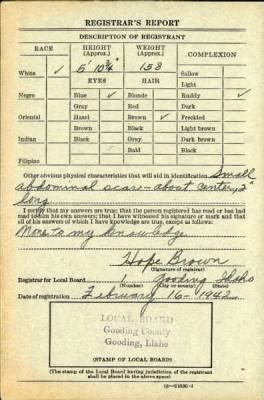 REGISTRAR'S REPORT
DESCRIPTION OF REGISTRANT
RACE HEIGHT (Approx.) WEIGHT (Approx.) COMPLEXION
White ✓ 5' 10¾" 158 Sallow
EYES HAIR Light
Negro Blue ✓ Blonde Ruddy ✓
Gray Red Dark
Oriental Hazel Brown ✓ Freckled
Brown Black Light brown
Indian Black Gray Dark brown
Bald Black
Filipino
Other obvious physical characteristics that will aid in identification Small
abdominal scar - about center, 2"
long
I certify that my answers are true; that the person registered has read or has had
read to him his own answers; that I have witnessed his signature or mark and that
all of his answers of which I have knowledge are true, except as follows:
None to my knowledge
Hope Brown
(Signature of registrar)
Registrar for Local Board 1 Gooding Idaho
Date of registration February 16 - 1942
LOCAL BOARD
Gooding County
Gooding, Idaho
(STAMP OF LOCAL BOARD)
(The stamp of the Local Board having jurisdiction of the registrant
shall be placed in the above space.)
16—21630-1